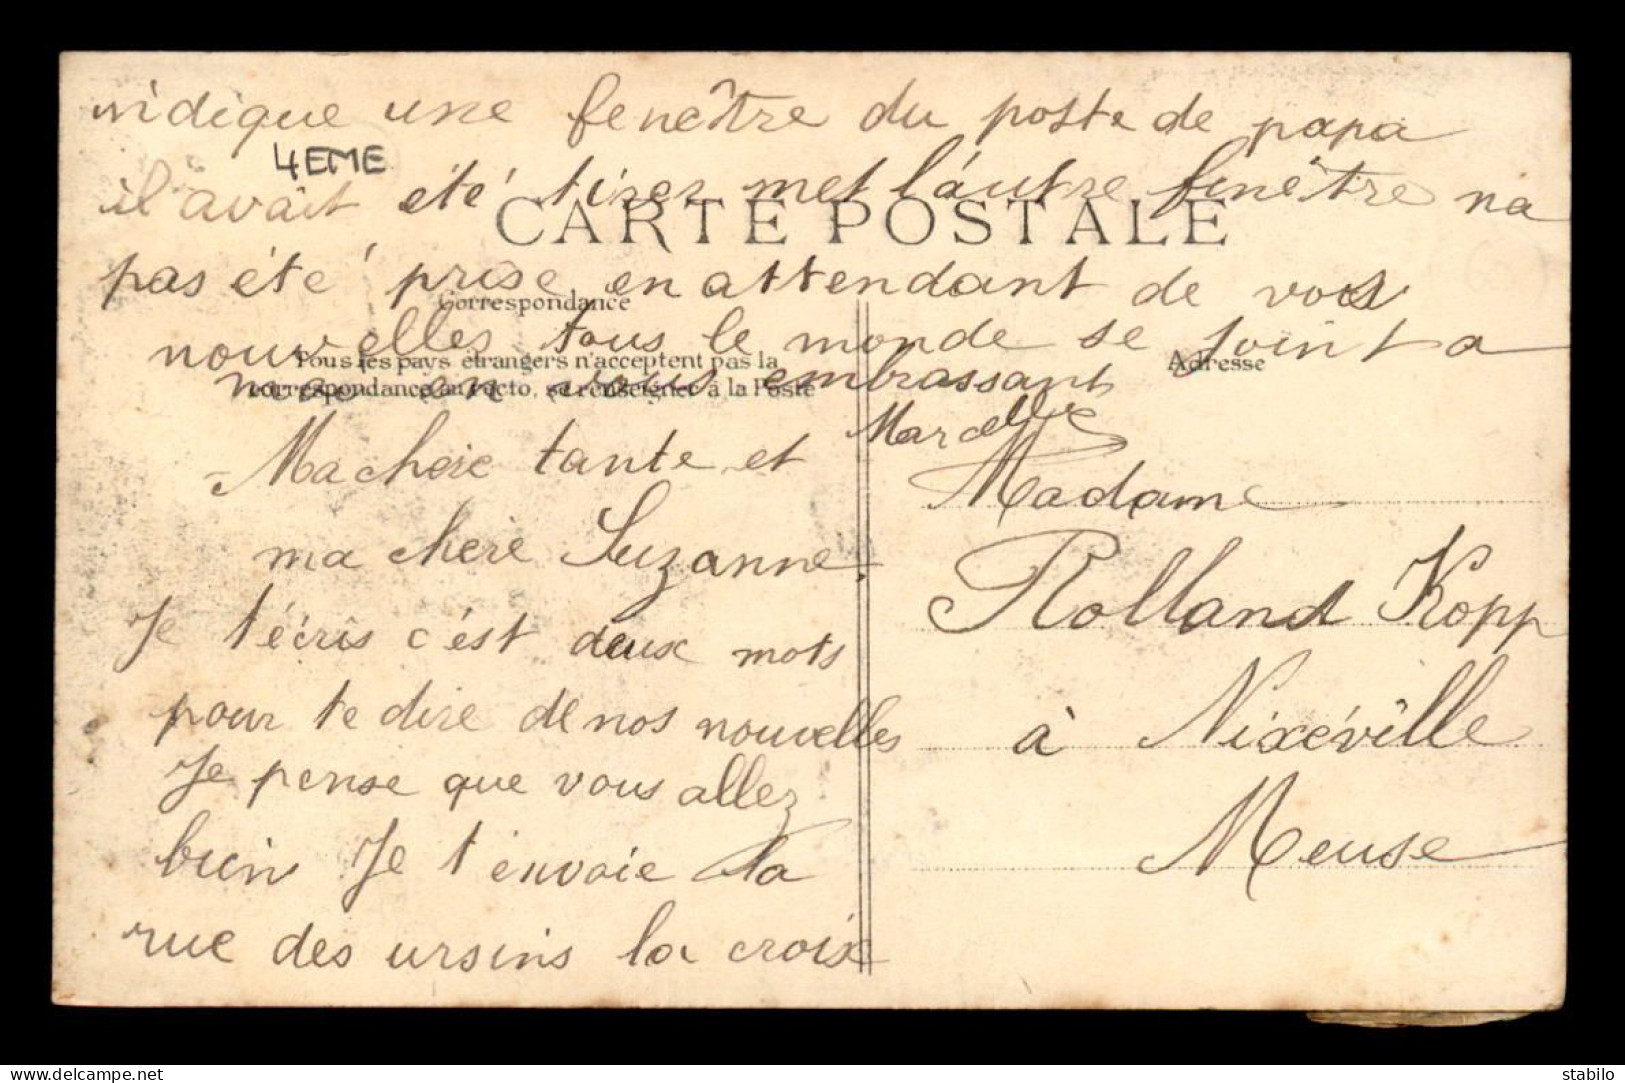 indique une fenêtre du poste de papa
4EME
il avait été tirer met l'autre fenêtre na
CARTE POSTALE
pas été prise en attendant de vos
Correspondance
nouvelles tous le monde se joint a
Tous les pays étrangers n'acceptent pas la
Adresse
correspondance au recto, se renseigner à la Poste
en vous embrassant
Marcelle
Ma chère tante et
ma chère Suzanne.
Je t'écris c'est deux mots
pour te dire de nos nouvelles
Je pense que vous allez
bien Je t'envoie la
rue des ursins la croix
Madame
Rolland Kopp
à Nixéville
Meuse
delcampe.net
stabilo